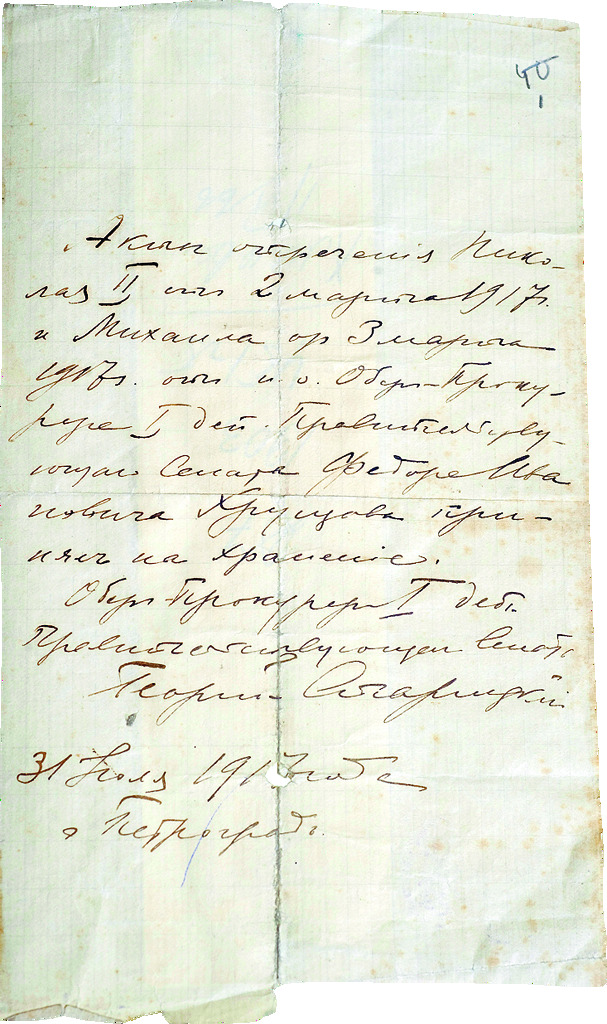 40
1
Акты отречения Нико-
лая II отъ 2 марта 1917 г.
и Михаила от 3 марта
1917 г. отъ и. о. Оберъ-Проку-
рора I деп. Правительству-
ющаго Сената Федора Ива
новича Хрущова при-
нялъ на хранение.
Оберъ-Прокуроръ I деп.
Правительствующаго Сената
Георгий Старицкий
31 Июля 1917 года
г. Петроградъ.